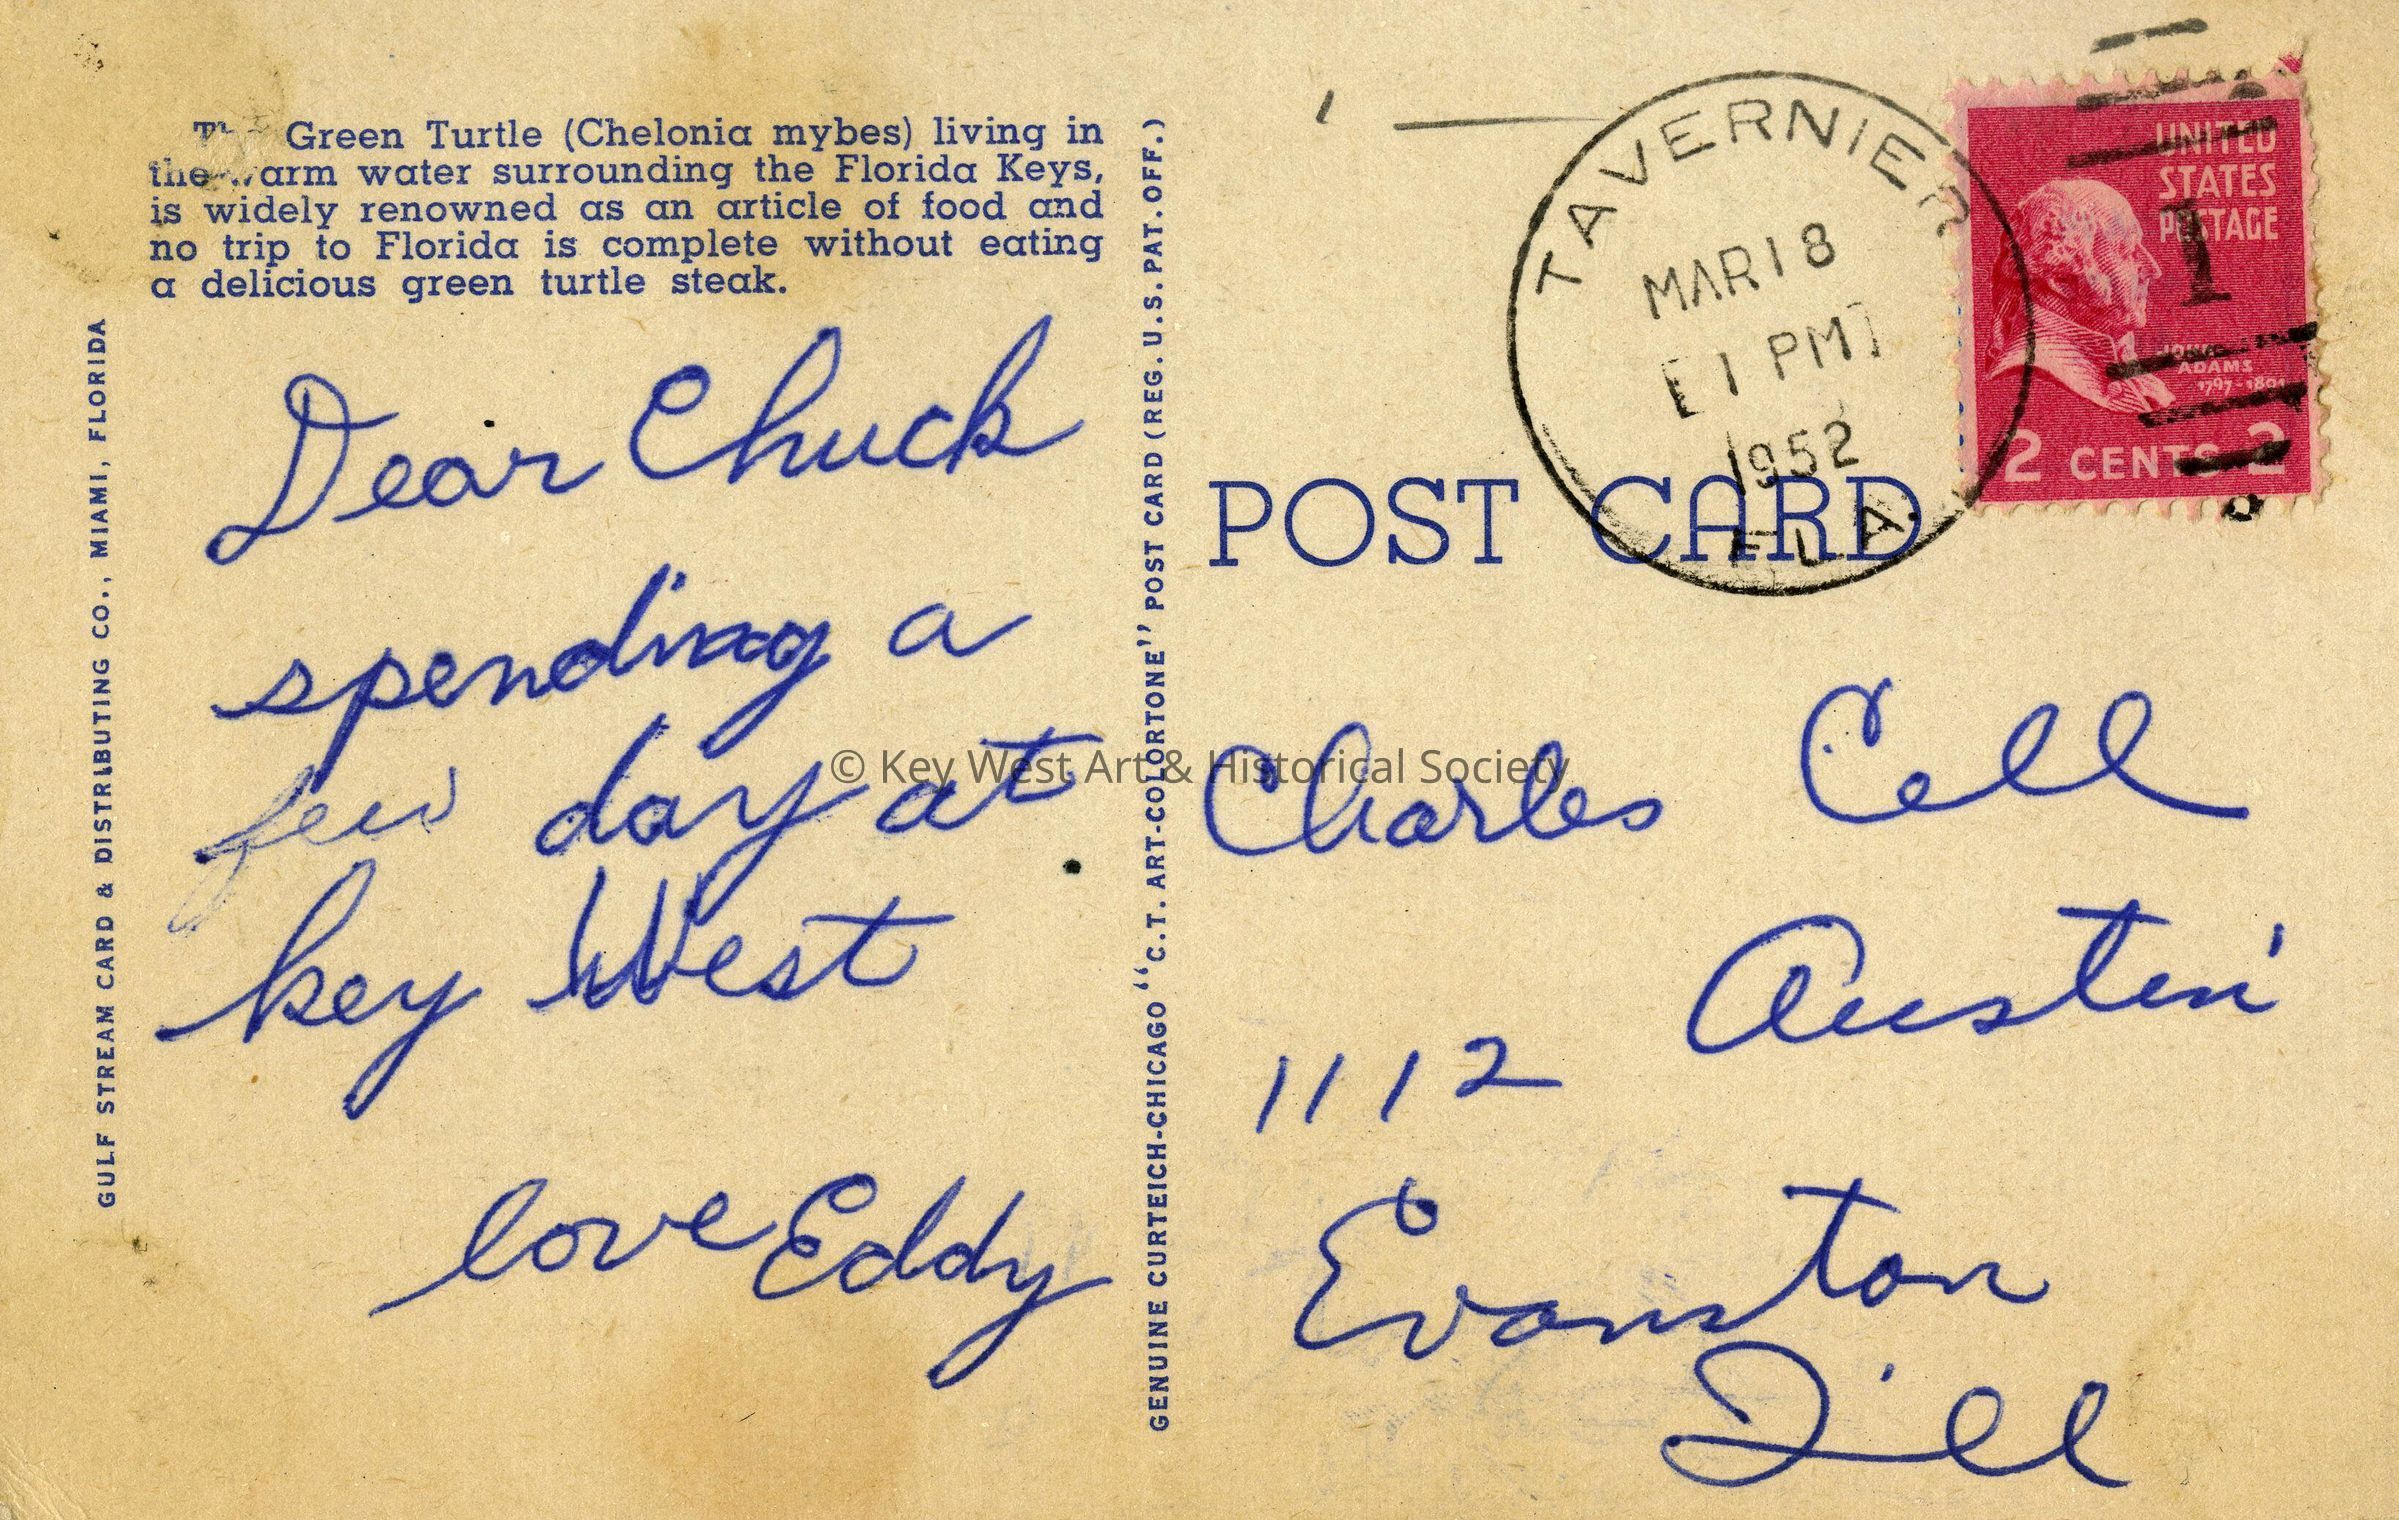 The Green Turtle (Chelonia mybes) living in
the warm water surrounding the Florida Keys,
is widely renowned as an article of food and
no trip to Florida is complete without eating
a delicious green turtle steak.
GULF STREAM CARD & DISTRIBUTING CO., MIAMI, FLORIDA
Dear Chuck
spending a
few day at
key West
love Eddy
GENUINE CURTEICH-CHICAGO "C.T. ART-COLORTONE" POST CARD (REG. U.S. PAT. OFF.)
POST CARD
TAVERNIER
MAR 18
1 PM
1952
FLA.
UNITED
STATES
POSTAGE
1
JOHN
ADAMS
1797-1801
2 CENTS 2
Charles Cell
Austin
1112
Evanston
Ill
© Key West Art & Historical Society